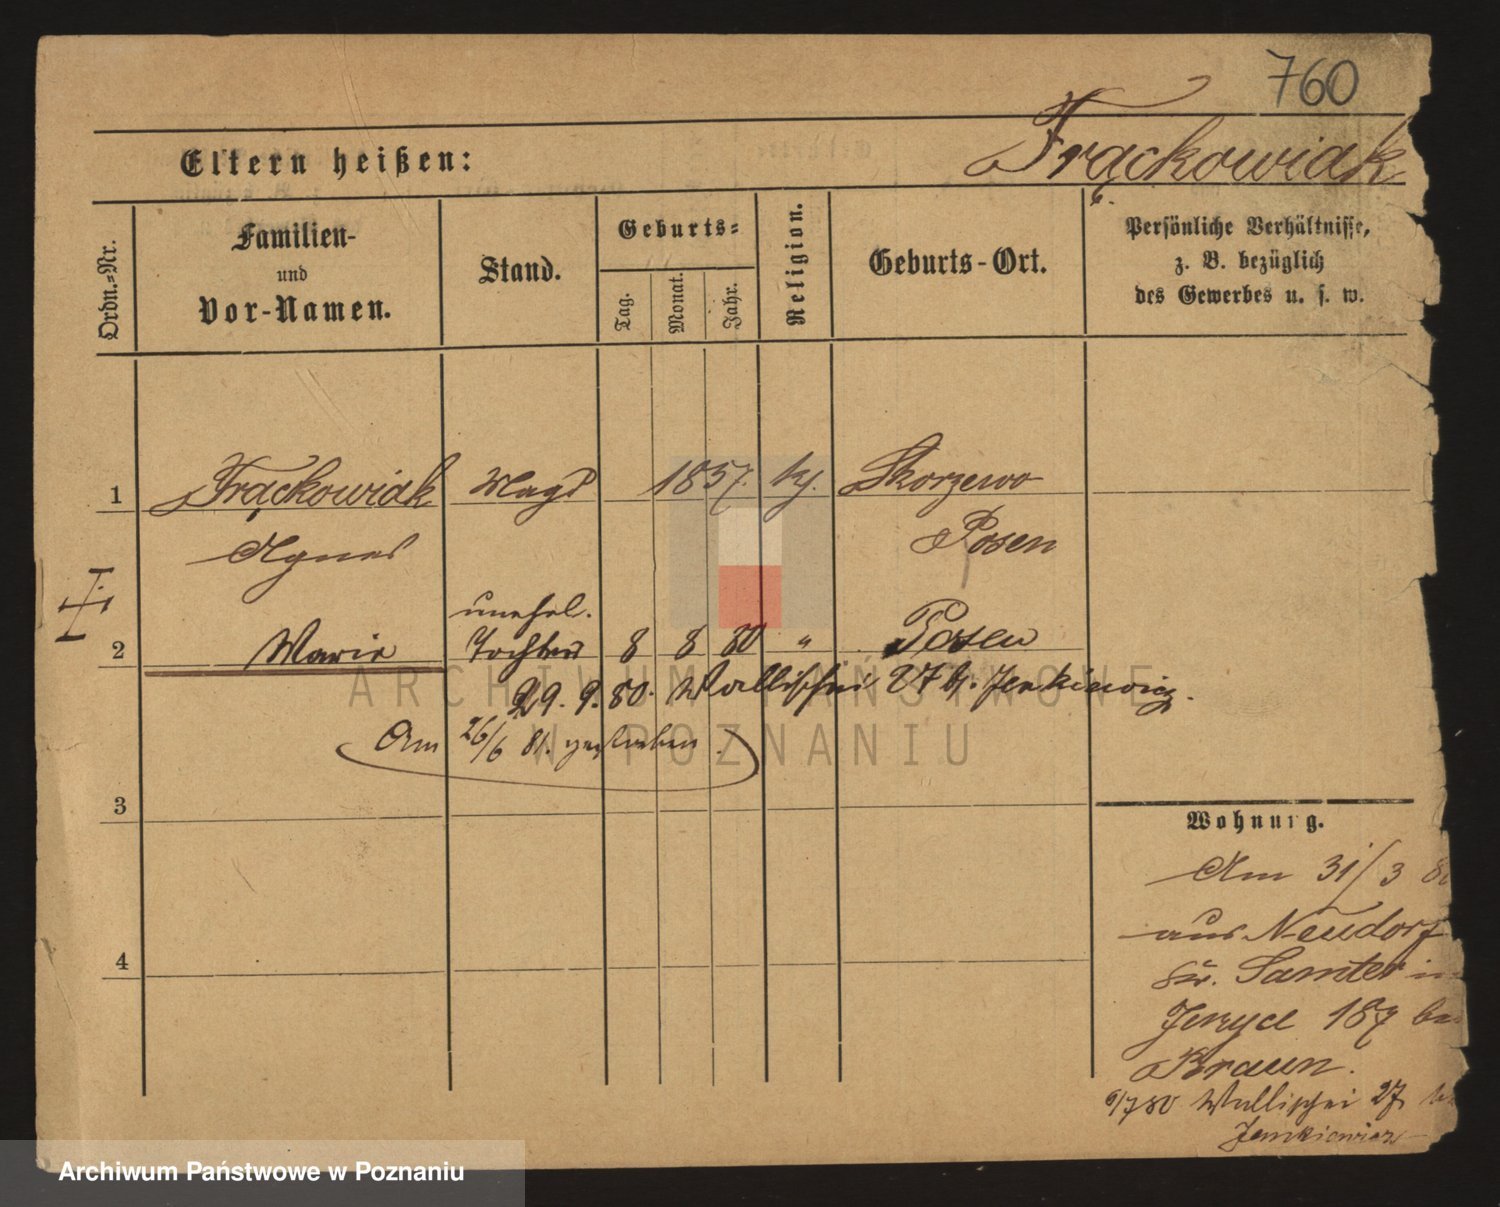 760
Frąckowiak
Eltern heißen:
Ordn.-Nr.
Familien-
und
Vor-Namen.
Stand.
Geburts-
Tag.
Monat.
Jahr.
Religion.
Geburts-Ort.
Persönliche Verhältnisse,
z. B. bezüglich
des Gewerbes u. s. w.
1 Frąckowiak Magd 1857. kț. Skorzewo
Agnes Posen
unehel.
2 Marie Tochter 8 8 80 " Posen
29. 9. 80. Wallischei 27 b. Jenkiewicz.
Am 26/6 81. gestorben.
3
4
Wohnung.
Am 31/3 8
aus Neudorf
Kr. Samter in
Jerzyce 187 bei
Braun.
6/7 80 Wallischei 27
Jenkiewicz
ARCHIWUM PAŃSTWOWE
W POZNANIU
Archiwum Państwowe w Poznaniu